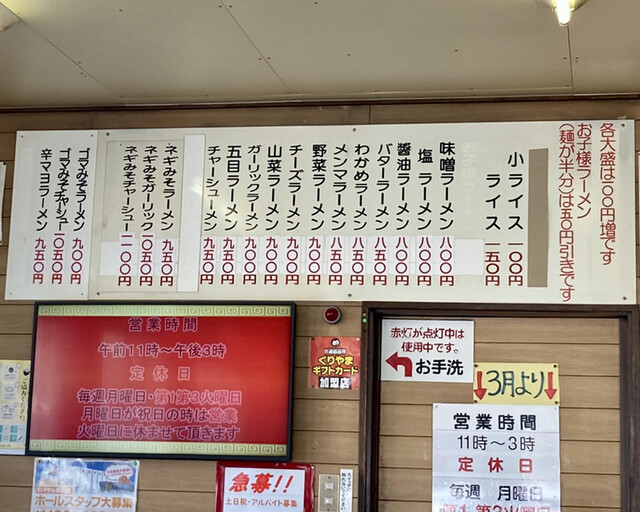 各大盛は一〇〇円増です
お子様ラーメン
（麺が半分）は五〇円引きです
小ライス 一〇〇円
ライス 一五〇円
味噌ラーメン 八〇〇円
塩ラーメン 八〇〇円
醤油ラーメン 八〇〇円
バターラーメン 八五〇円
わかめラーメン 八五〇円
メンマラーメン 八五〇円
野菜ラーメン 九〇〇円
チーズラーメン 九〇〇円
山菜ラーメン 九〇〇円
ガーリックラーメン 九〇〇円
五目ラーメン 九五〇円
チャーシューメン 九五〇円
ネギみそラーメン 九五〇円
ネギみそガーリック 一〇五〇円
ネギみそチャーシュー 一一〇〇円
ゴマみそラーメン 九〇〇円
ゴマみそチャーシュー 一〇五〇円
辛マヨラーメン 九五〇円
営業時間
午前11時〜午後3時
定休日
毎週月曜日・第1第3火曜日
月曜日が祝日の時は営業
火曜日に休ませて頂きます
共通商品券
くりやま
ギフトカード
加盟店
赤灯が点灯中は
使用中です。
お手洗
3月より
営業時間
11時〜3時
定休日
毎週 月曜日
第1 第3火曜日
ホールスタッフ大募集
急募!!
土日祝・アルバイト募集